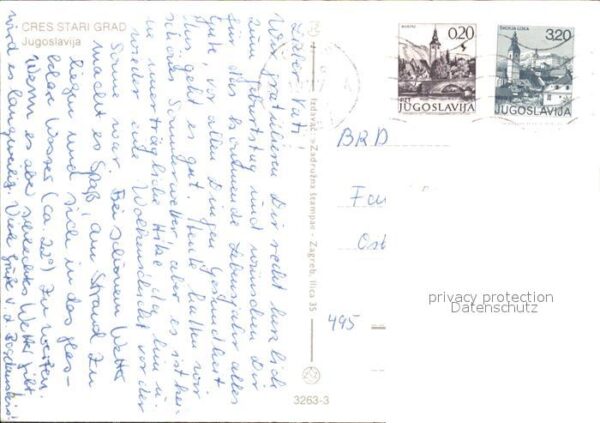 CRES STARI GRAD
Jugoslavija
Lieber Vati!
Wir gratulieren Dir recht herzlich
zum Geburtstag und wünschen Dir
für das kommende Lebensjahr alles
Gute, vor allen Dingen Gesundheit.
Uns geht es gut. Heute hatten wir
schönes Sommerwetter aber es ist keine
unerträgliche Hitze da hin u.
wieder eine Wolkenschicht vor der
Sonne war. Bei schönem Wetter
macht es Spaß, am Strand zu
liegen und sich in das glas-
klare Wasser (ca. 22°) zu werfen.
Wenn es aber schlechtes Wetter gibt,
wird es langweilig. Viele Grüße v. d.
izdavač: »Zadružna štampa« - Zagreb, Ilica 35
3263-3
0,20
JUGOSLAVIJA
3,20
JUGOSLAVIJA
BRD
Ost
495
privacy protection
Datenschutz